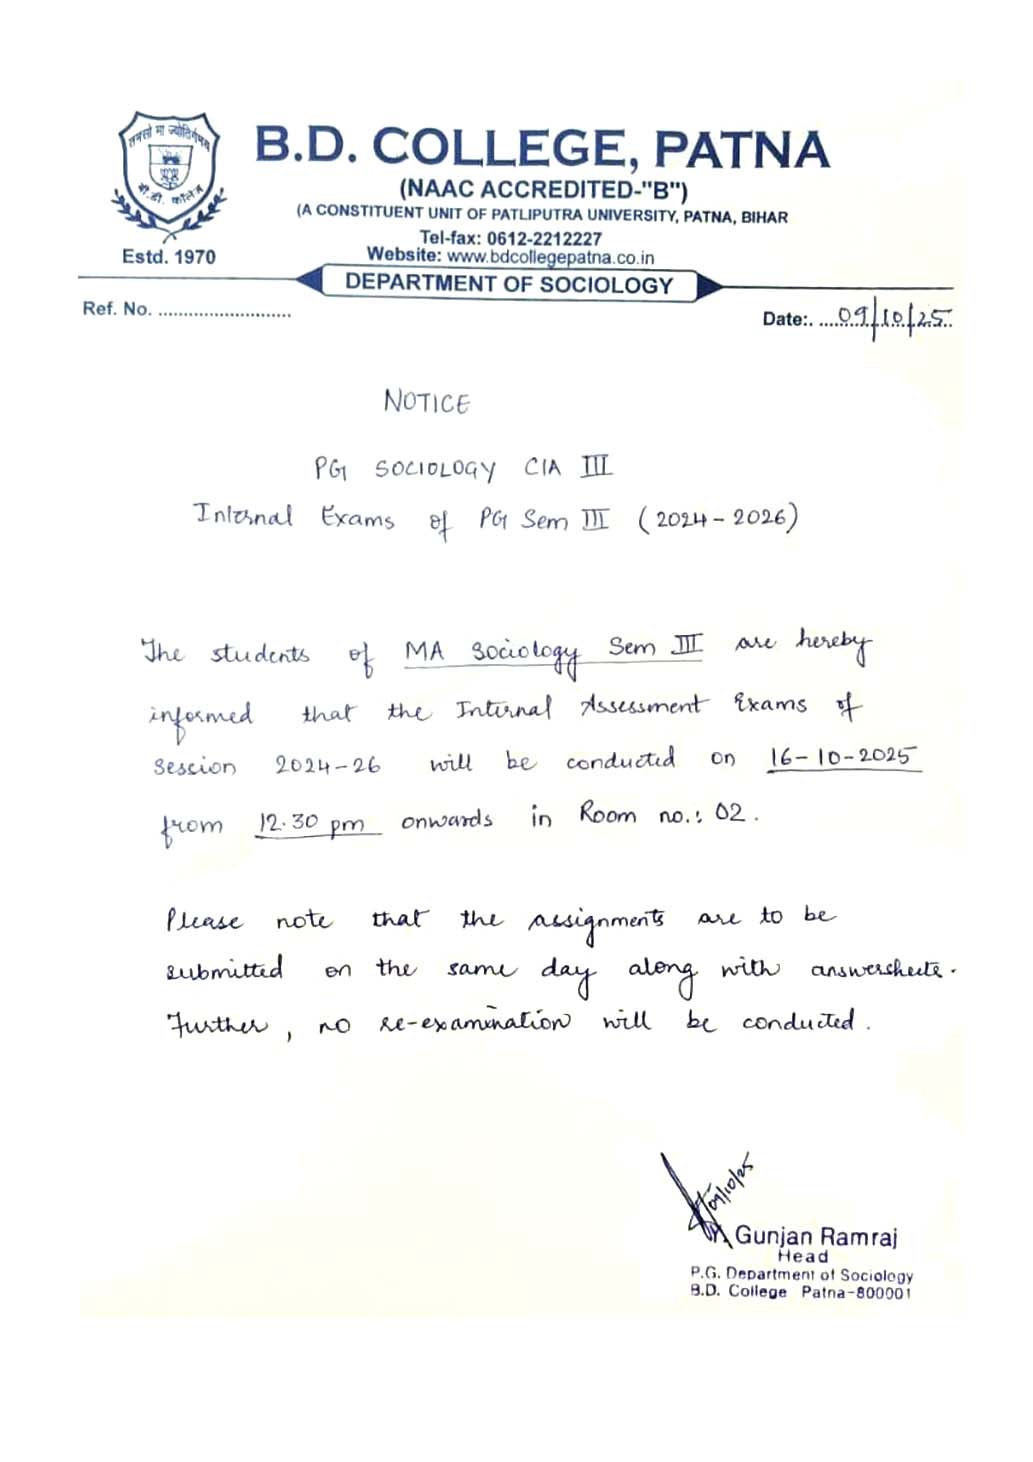 तमसो मा ज्योतिर्गमय
बी.डी. कॉलेज
Estd. 1970
B.D. COLLEGE, PATNA
(NAAC ACCREDITED-"B")
(A CONSTITUENT UNIT OF PATLIPUTRA UNIVERSITY, PATNA, BIHAR
Tel-fax: 0612-2212227
Website: www.bdcollegepatna.co.in
DEPARTMENT OF SOCIOLOGY
Ref. No. ..........................
Date:. ....09/10/25..
NOTICE
PG SOCIOLOGY CIA III
Internal Exams of PG Sem III (2024-2026)
The students of MA Sociology Sem III are hereby
informed that the Internal Assessment Exams of
Session 2024-26 will be conducted on 16-10-2025
from 12.30 pm onwards in Room no.: 02.
Please note that the assignments are to be
submitted on the same day along with answersheets.
Further, no re-examination will be conducted.
09/10/25
Gunjan Ramraj
Head
P.G. Department of Sociology
B.D. College Patna-800001